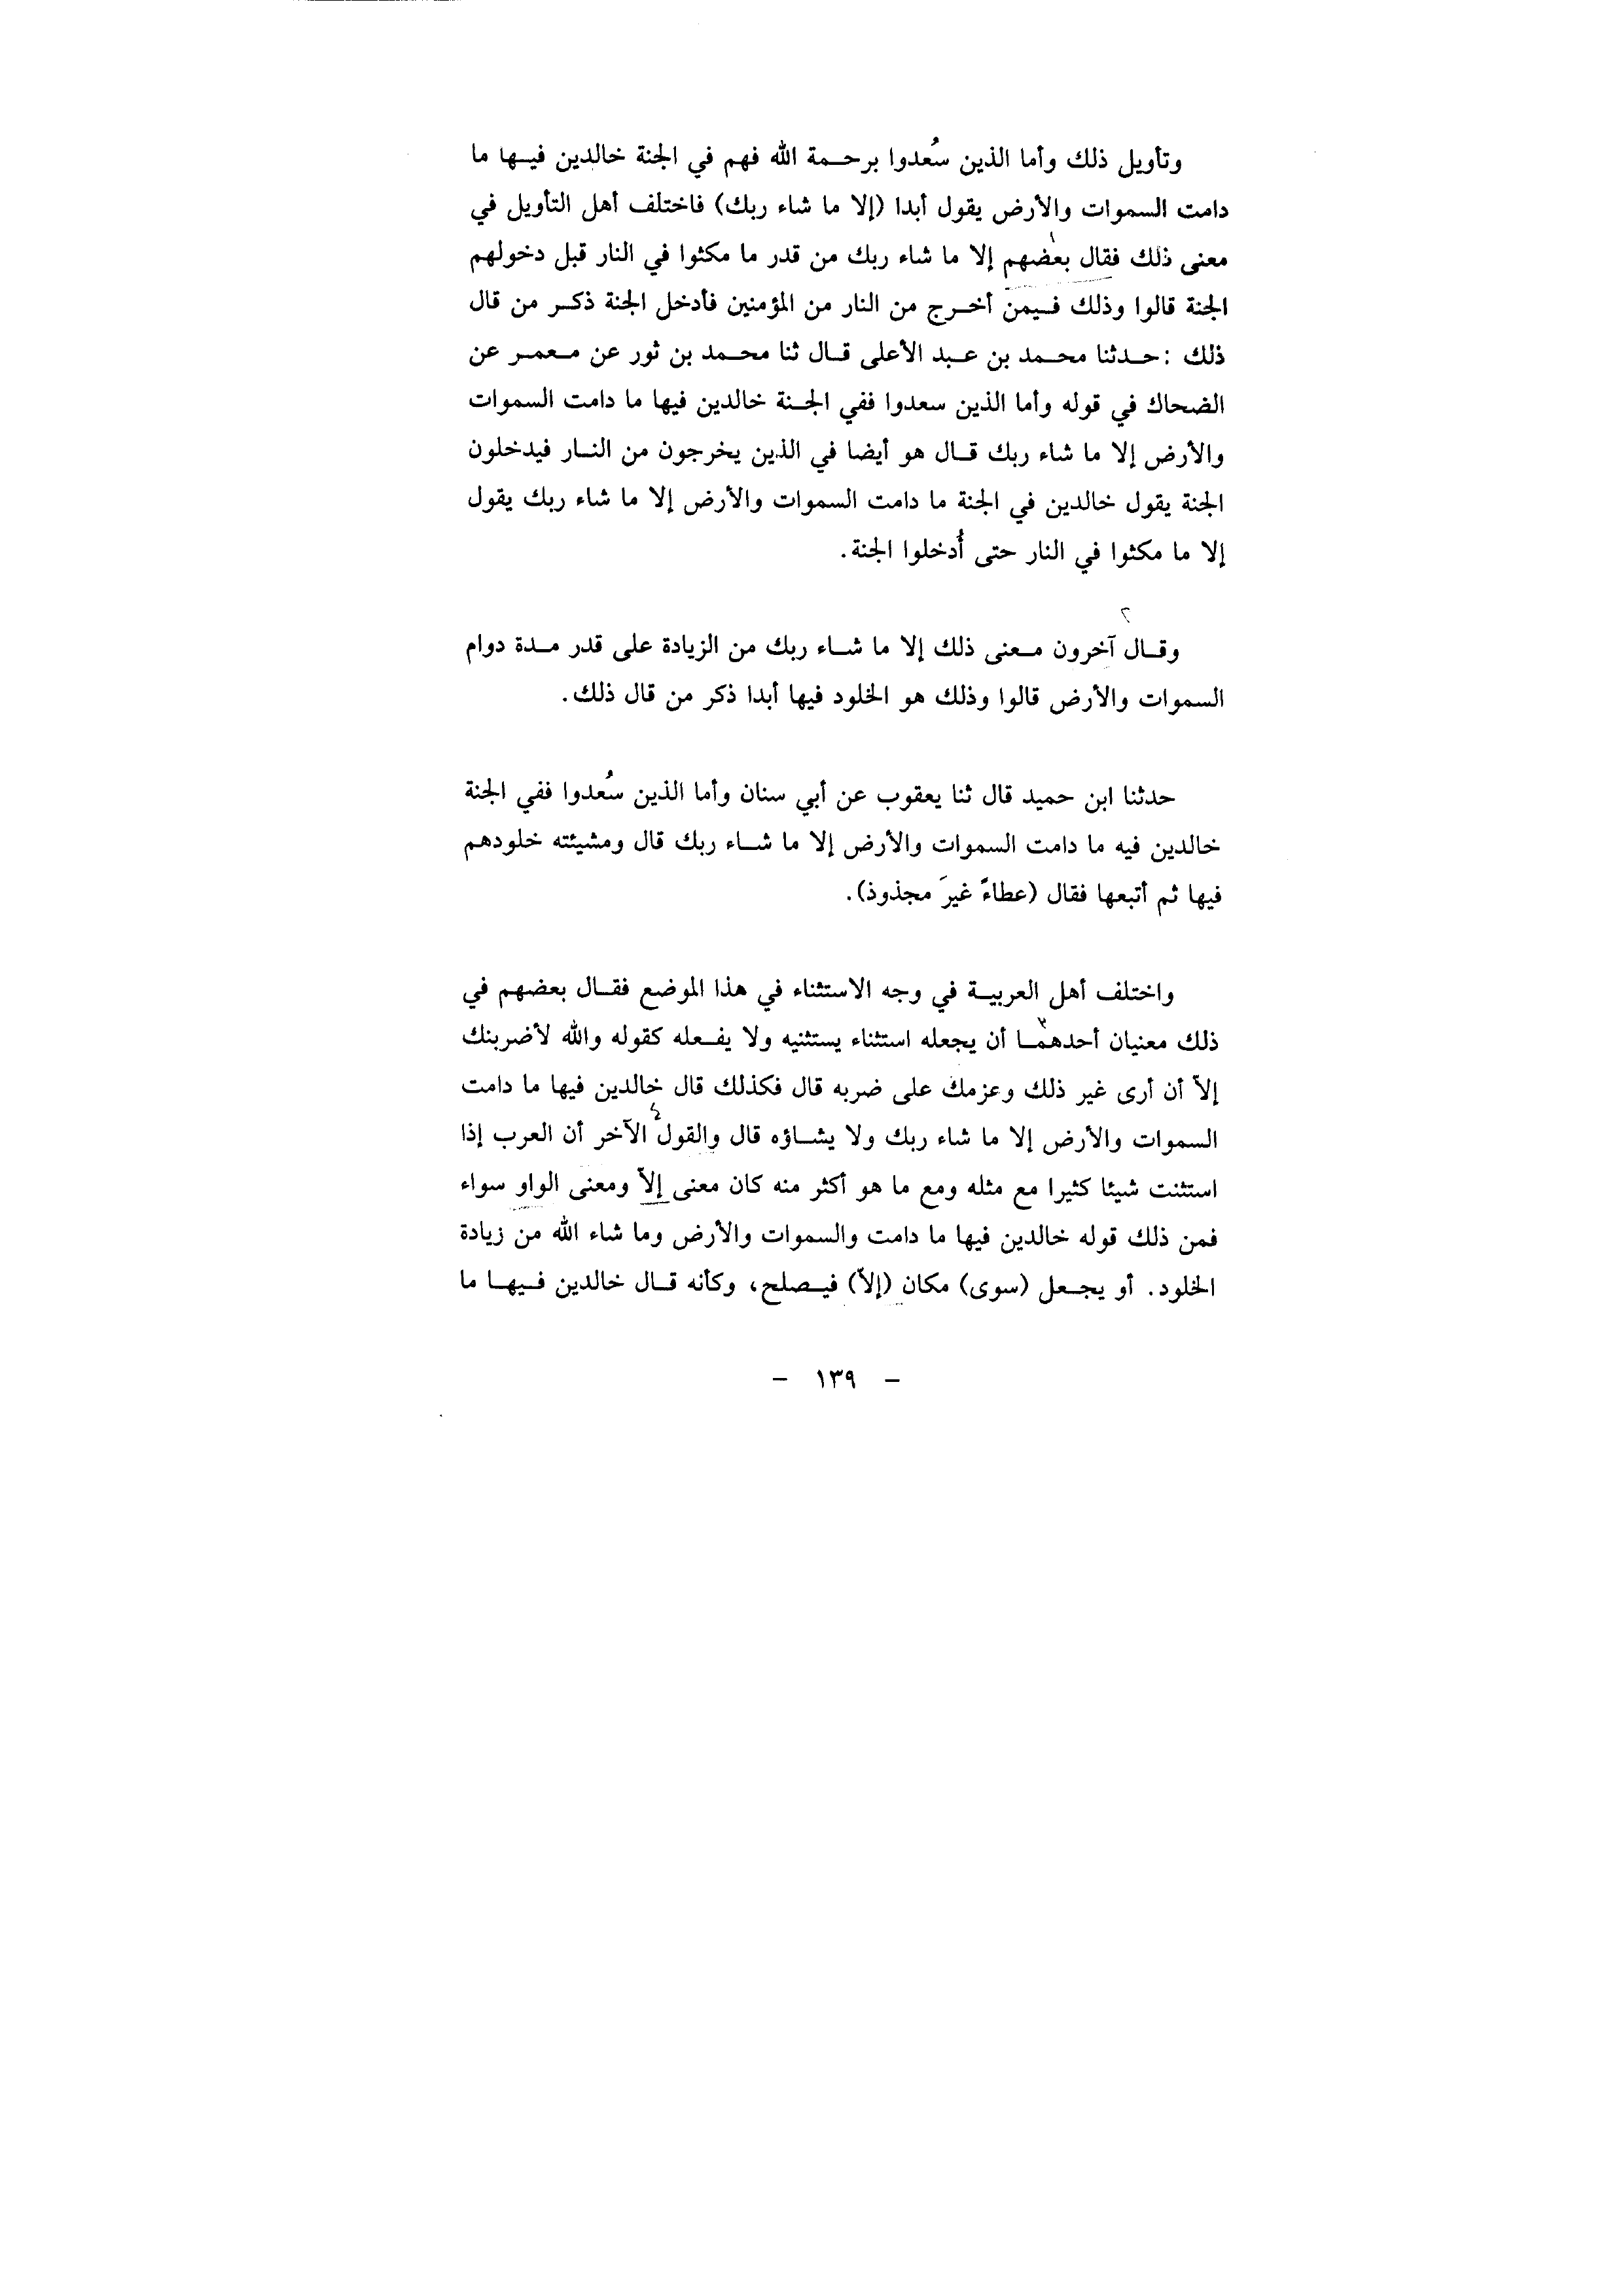 وتأويل ذلك وأما الذين سُعدوا برحمة الله فهم في الجنة خالدين فيها ما
دامت السموات والأرض يقول أبدا (إلا ما شاء ربك) فاختلف أهل التأويل في
معنى ذلك فقال بعضهم إلا ما شاء ربك من قدر ما مكثوا في النار قبل دخولهم
الجنة قالوا وذلك فيمن أخرج من النار من المؤمنين فأدخل الجنة ذكر من قال
ذلك : حدثنا محمد بن عبد الأعلى قال ثنا محمد بن ثور عن معمر عن
الضحاك في قوله وأما الذين سعدوا ففي الجنة خالدين فيها ما دامت السموات
والأرض إلا ما شاء ربك قال هو أيضا في الذين يخرجون من النار فيدخلون
الجنة يقول خالدين في الجنة ما دامت السموات والأرض إلا ما شاء ربك يقول
إلا ما مكثوا في النار حتى أُدخلوا الجنة.
٢
وقال آخرون معنى ذلك إلا ما شاء ربك من الزيادة على قدر مدة دوام
السموات والأرض قالوا وذلك هو الخلود فيها أبدا ذكر من قال ذلك.
حدثنا ابن حميد قال ثنا يعقوب عن أبي سنان وأما الذين سُعدوا ففي الجنة
خالدين فيه ما دامت السموات والأرض إلا ما شاء ربك قال ومشيئته خلودهم
فيها ثم أتبعها فقال (عطاءً غيرَ مجذوذ).
واختلف أهل العربية في وجه الاستثناء في هذا الموضع فقال بعضهم في
ذلك معنيان أحدهما أن يجعله استثناء يستثنيه ولا يفعله كقوله والله لأضربنك
إلاّ أن أرى غير ذلك وعزمك على ضربه قال فكذلك قال خالدين فيها ما دامت
السموات والأرض إلا ما شاء ربك ولا يشاؤه قال والقول الآخر أن العرب إذا
استثنت شيئا كثيرا مع مثله ومع ما هو أكثر منه كان معنى إلاّ ومعنى الواو سواء
فمن ذلك قوله خالدين فيها ما دامت والسموات والأرض وما شاء الله من زيادة
الخلود. أو يجعل (سوى) مكان (إلاّ) فيصلح، وكأنه قال خالدين فيها ما
– ١٣٩ –